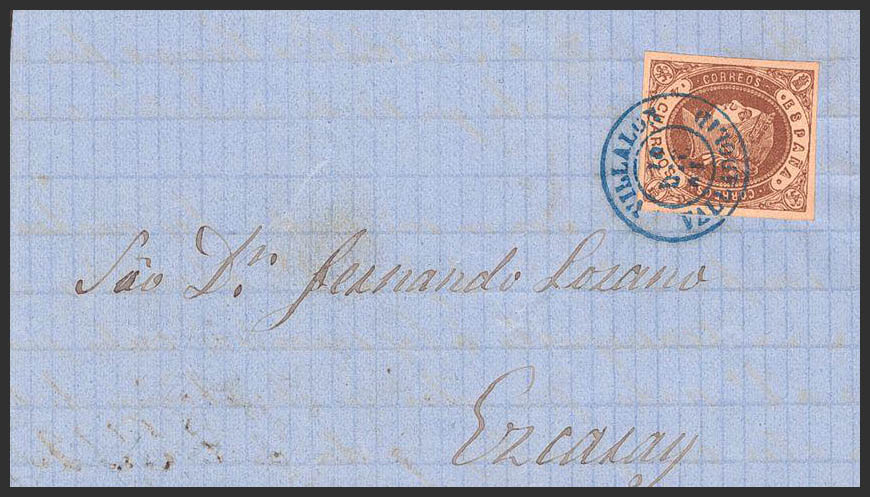 CORREOS
ESPAÑA
CORREOS
VILLALON
Sõo Dn. Fernando Lozano
Ezcaray